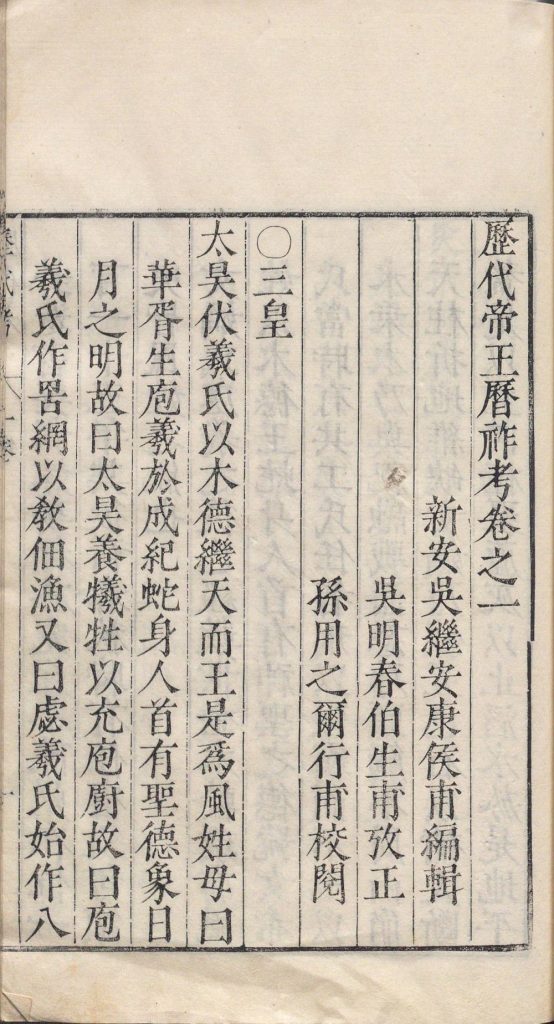 歷代帝王曆祚考卷之一
新安吳繼安康侯甫編輯
吳明春伯生甫攷正
孫用之爾行甫校閱
〇三皇
太昊伏羲氏以木德繼天而王是爲風姓母曰
華胥生庖羲於成紀蛇身人首有聖德象日
月之明故曰太昊養犧牲以充庖廚故曰庖
羲氏作罟網以敎佃漁又曰虙羲氏始作八